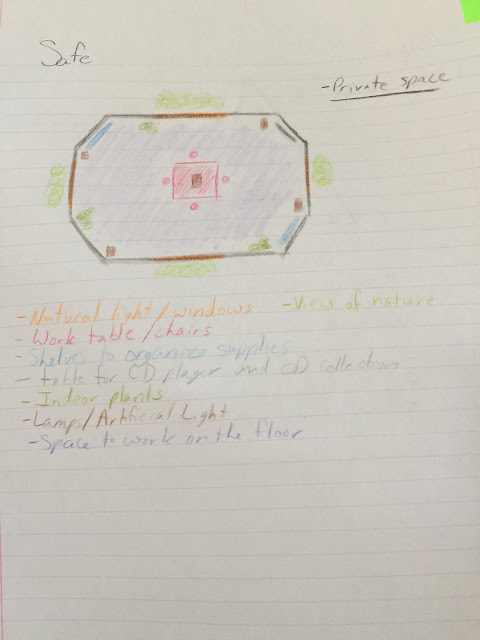 Safe
- Private space
- Natural light/windows
- View of nature
- Work table/chairs
- Shelves to organize supplies
- table for CD player and CD collection
- Indoor plants
- Lamps/Artificial Light
- Space to work on the floor